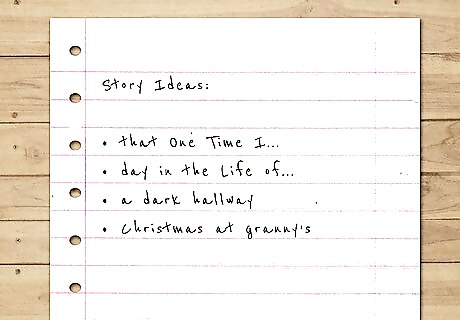 Story Ideas:
• that One Time I...
• day in the Life of...
• a dark hallway
• Christmas at granny's